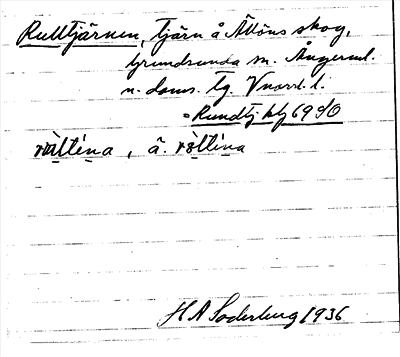 Rulltjärnen, tjärn å Ällöns skog,
Grundsunda sn. Ångerml.
n. doms. tg. Vnorrl. l.
= Rundtj. blj 69 SO
rùltina, ä. ròltina
H A Söderberg 1936